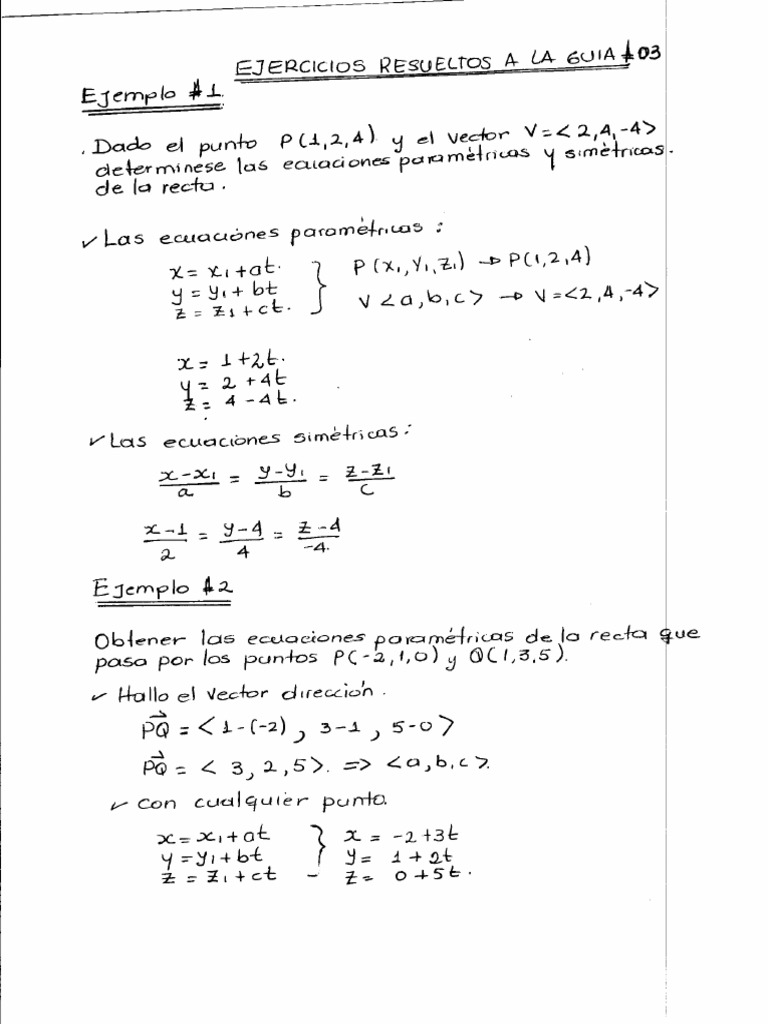 EJERCICIOS RESUELTOS A LA GUIA #03
Ejemplo #1.
. Dado el punto P(1,2,4) y el vector V=<2,4,-4>
determinese las ecuaciones paramétricas y simétricas.
de la recta.
✓ Las ecuaciónes paramétricas:
x = x1+at. } P(x1,y1,z1) → P(1,2,4)
y = y1+bt
z = z1+ct. V<a,b,c> → V=<2,4,-4>
x = 1+2t.
y = 2+4t
z = 4-4t.
✓ Las ecuaciónes simétricas:
x-x1/a = y-y1/b = z-z1/c
x-1/2 = y-4/4 = z-4/-4.
Ejemplo #2
Obtener las ecuaciones paramétricas de la recta que
pasa por los puntos P(-2,1,0) y Q(1,3,5).
✓ Hallo el vector dirección.
PQ = <1-(-2), 3-1, 5-0>
PQ = <3,2,5>. => <a,b,c>.
✓ con cualquier punto.
x = x1+at } x = -2+3t
y = y1+bt y = 1+2t
z = z1+ct - z = 0+5t.